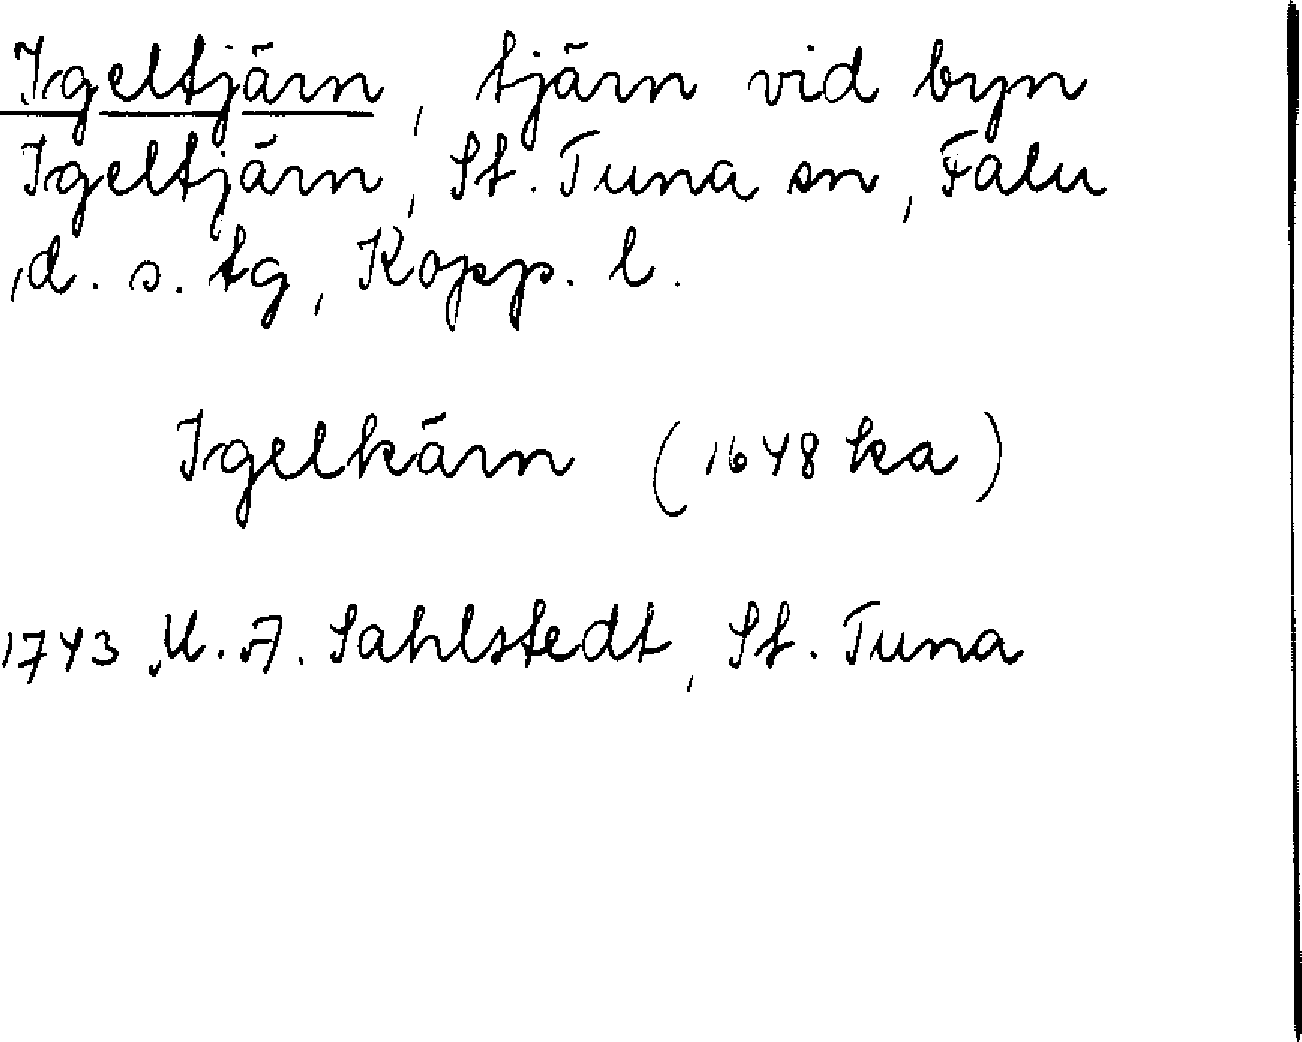 Igeltjärn, tjärn vid byn
Igeltjärn, St. Tuna sn, Falu
d. s. tg, Kopp. l.
Igelkärn (1648 ka)
1743 U. A. Sahlstedt, St. Tuna